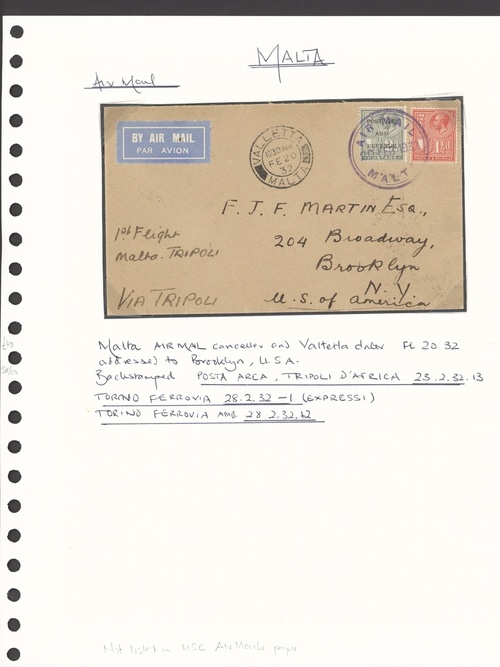 MALTA
Air Mail
BY AIR MAIL
PAR AVION
VALLETTA
10 30 AM
FE 20
32
MALTA
POSTAGE
AND
REVENUE
AIR MAIL
MALTA
1½d
F. J. F. MARTIN ESQ.,
204 Broadway,
Brooklyn
N. Y.
U. S. of America
1st Flight
Malta. TRIPOLI
VIA TRIPOLI
Malta AIR MAIL canceller and Valletta dater FE 20 32
addressed to Brooklyn, U.S.A.
Backstamped POSTA AREA, TRIPOLI D'AFRICA 23.2.32.13
TORINO FERROVIA 28.2.32 -1 (EXPRESSI)
TORINO FERROVIA AMB 28.2.32.12
Not listed in MSC Air Mails